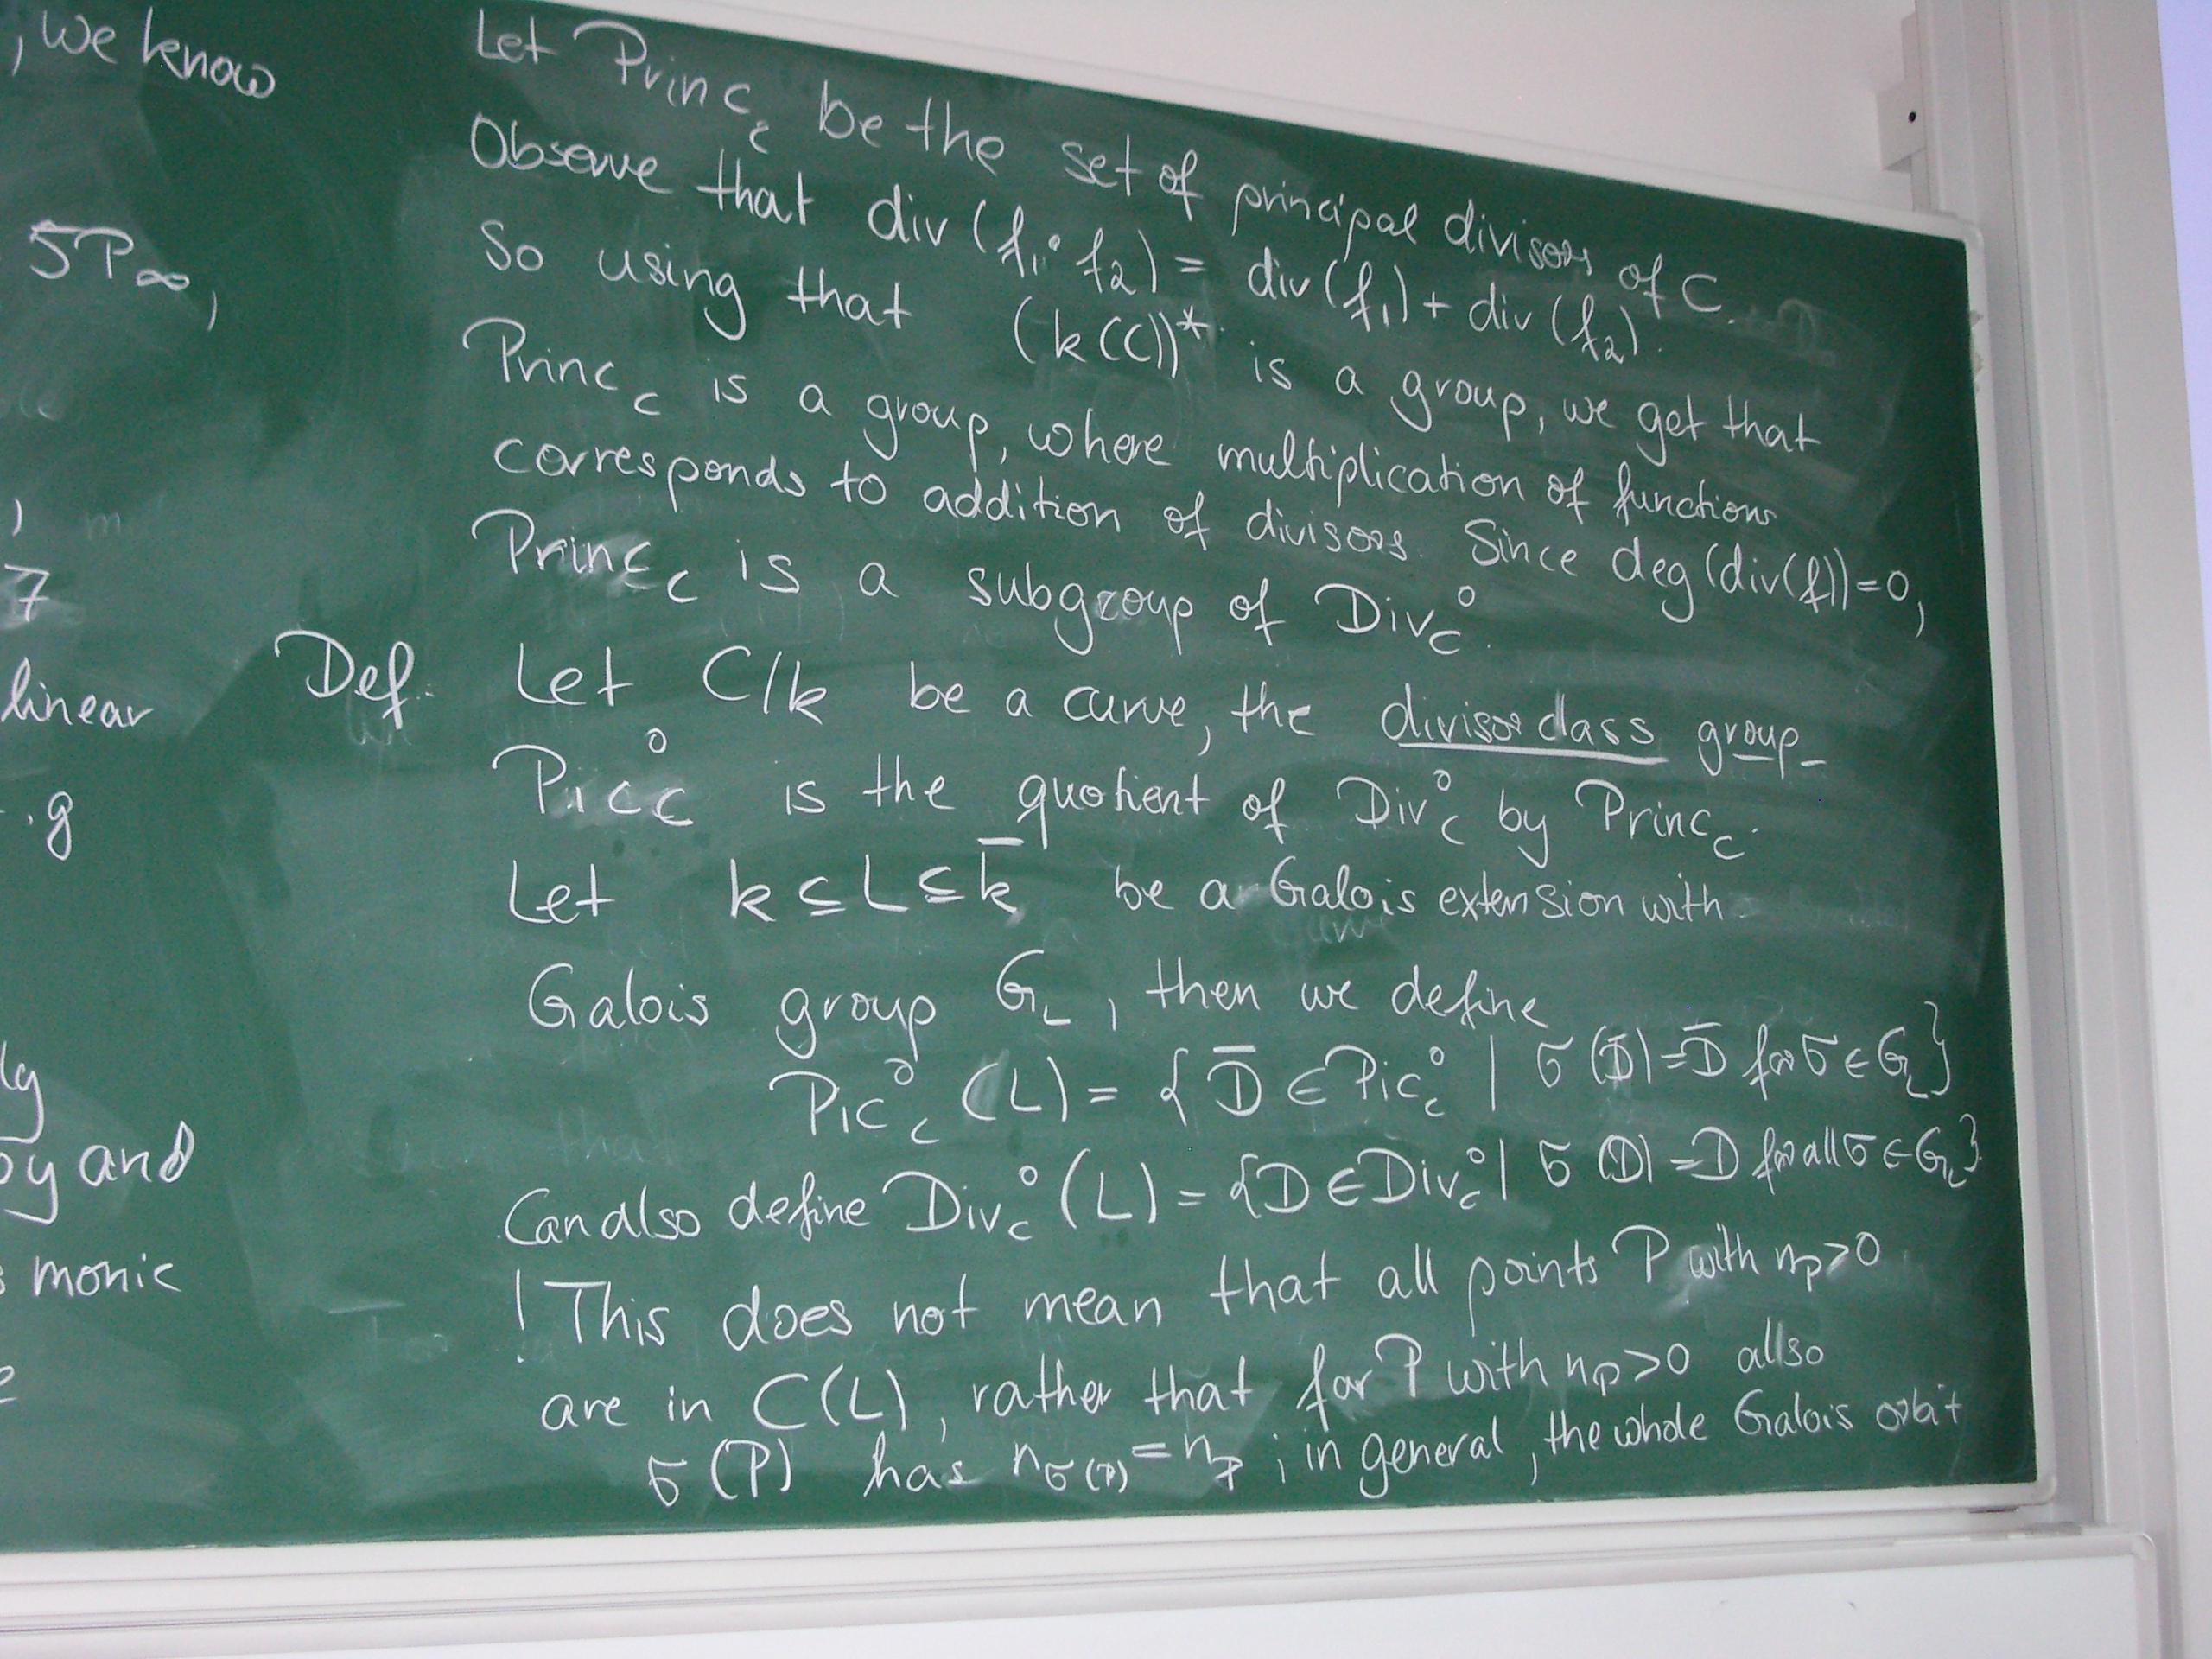 , we know
5P∞,
)
7
linear
.g
ly
y and
monic
Let Princ_C be the set of principal divisors of C.
Observe that div(f₁·f₂) = div(f₁) + div(f₂).
So using that (k(C))* is a group, we get that
Princ_C is a group, where multiplication of functions
corresponds to addition of divisors. Since deg(div(f))=0,
Princ_C is a subgroup of Div_C^0.
Def. Let C/k be a curve, the divisor class group
Pic_C^0 is the quotient of Div_C^0 by Princ_C.
Let k ⊆ L ⊆ k̄ be a Galois extension with
Galois group G_L, then we define
Pic_C^0 (L) = { D̄ ∈ Pic_C^0 | σ(D̄) = D̄ for σ ∈ G_L}
Can also define Div_C^0 (L) = {D ∈ Div_C^0 | σ(D) = D for all σ ∈ G_L}
! This does not mean that all points P with n_P>0
are in C(L), rather that for P with n_P>0 allso
σ(P) has n_σ(P) = n_P ; in general, the whole Galois orbit